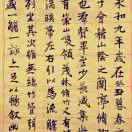 和九年歲在癸丑暮春
會稽山陰之蘭亭脩
也羣賢畢至少長咸集
有崇山峻領茂林脩竹
帶左右引以為流觴
列坐其次雖無絲竹
盛一觴一詠亦足以暢敘幽